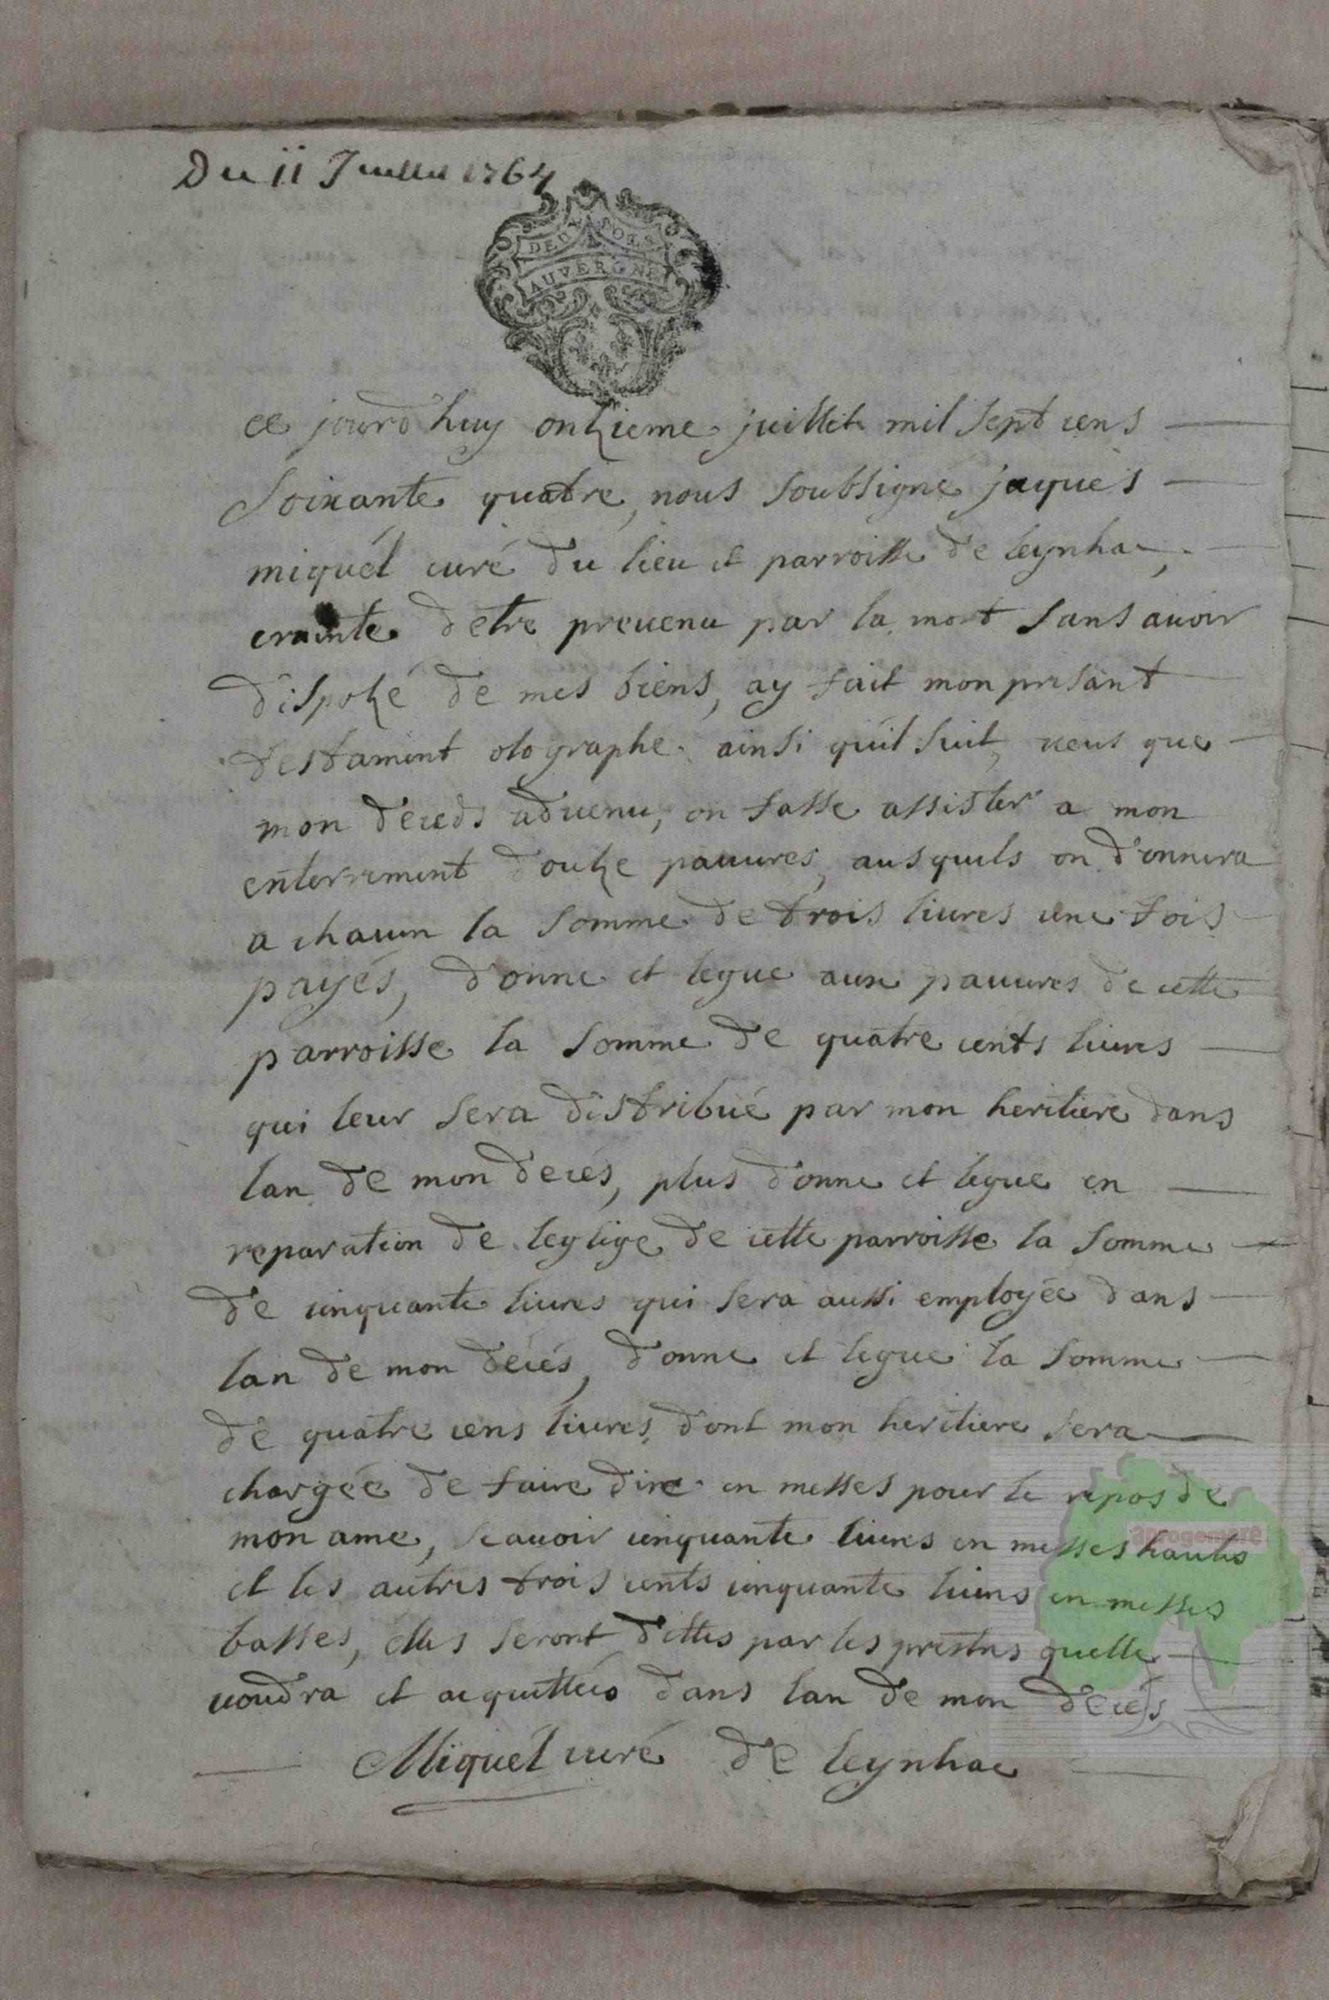 Du 11 Juillet 1764
DEUX SOLS
AUVERGNE
ce jourd huy onzieme juillet mil sept cens
soixante quatre, nous soubsigné jaques
miquél curé du lieu et parroisse de leynhac,
crainte detre prevenu par la mort sans avoir
dispozé de mes biens, ay fait mon presant
testament olographe ainsi quil suit, veus que
mon deceds advenu, on fasse assister a mon
enterrement douze pauvres, ausquels on donnera
a chacun la somme de trois livres une fois
payés, donne et legue aux pauvres de cette
parroisse la somme de quatre cents livres
qui leur sera distribué par mon heritiere dans
lan de mon decés, plus donne et legue en
reparation de leglige de cette parroisse la somme
de cinquante livres qui sera aussi employée dans
lan de mon décés, donne et legue la somme
de quatre cens livres dont mon heritiere sera
chargée de faire dire en messes pour le repos de
mon ame, scavoir cinquante livres en messes hautes
et les autres trois cents cinquante livres en messes
basses, elles seront dittes par les prestres quelle
voudra et acquittées dans lan de mon decés
Miquél curé de leynhac
aprogemere